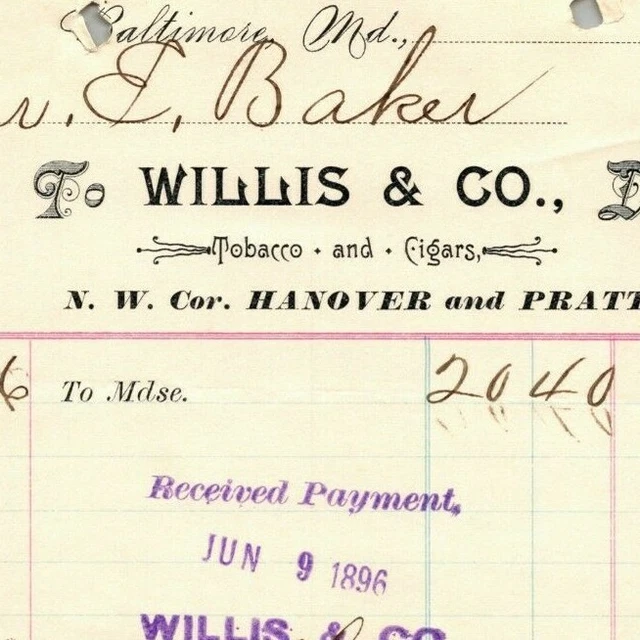 Baltimore, Md.,
r. E. Baker
To WILLIS & CO., D
Tobacco and Cigars,
N. W. Cor. HANOVER and PRATT
6 To Mdse. 20 40
Received Payment,
JUN 9 1896
WILLIS & CO